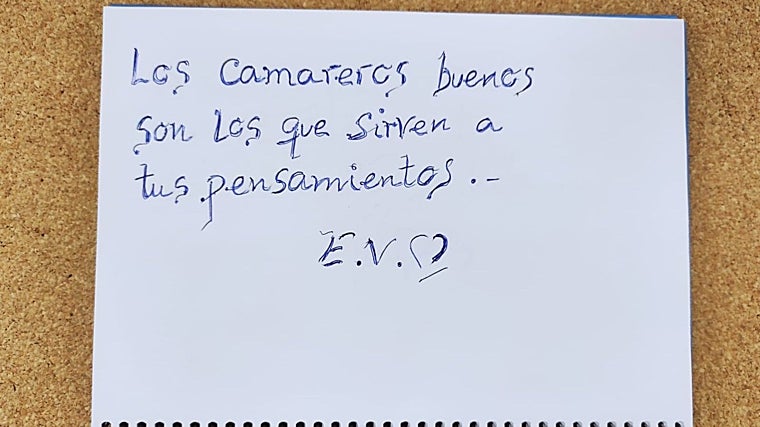 Los camareros buenos
son los que sirven a
tus pensamientos .-
E.V.♡